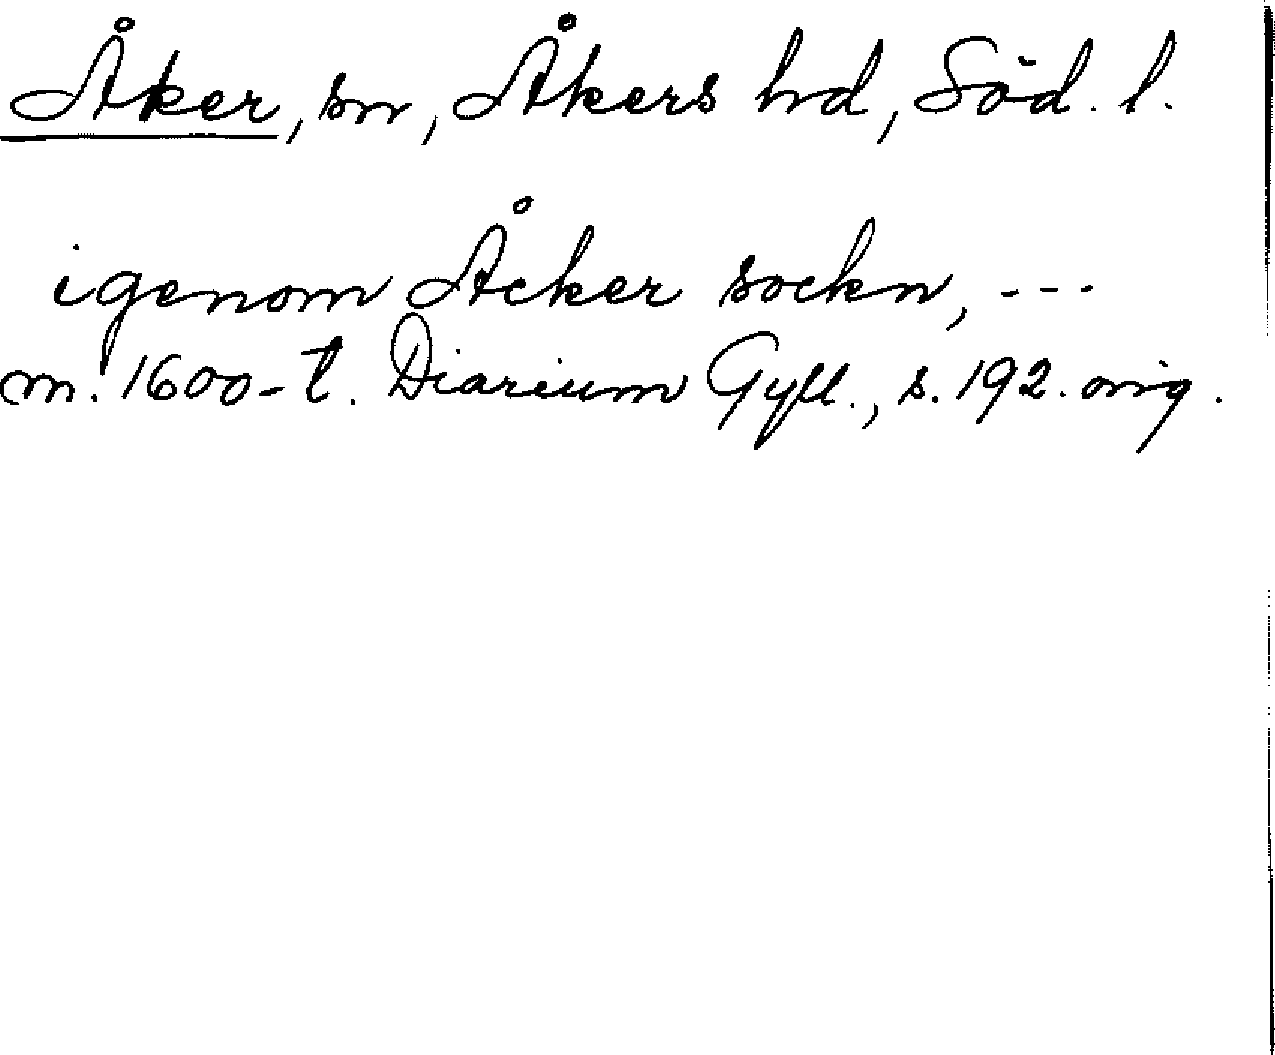 Åker, sn, Åkers hd, Söd. l.
igenom Åcker sockn, ---
m. 1600-t. Diarium Gyll., s. 192. orig.